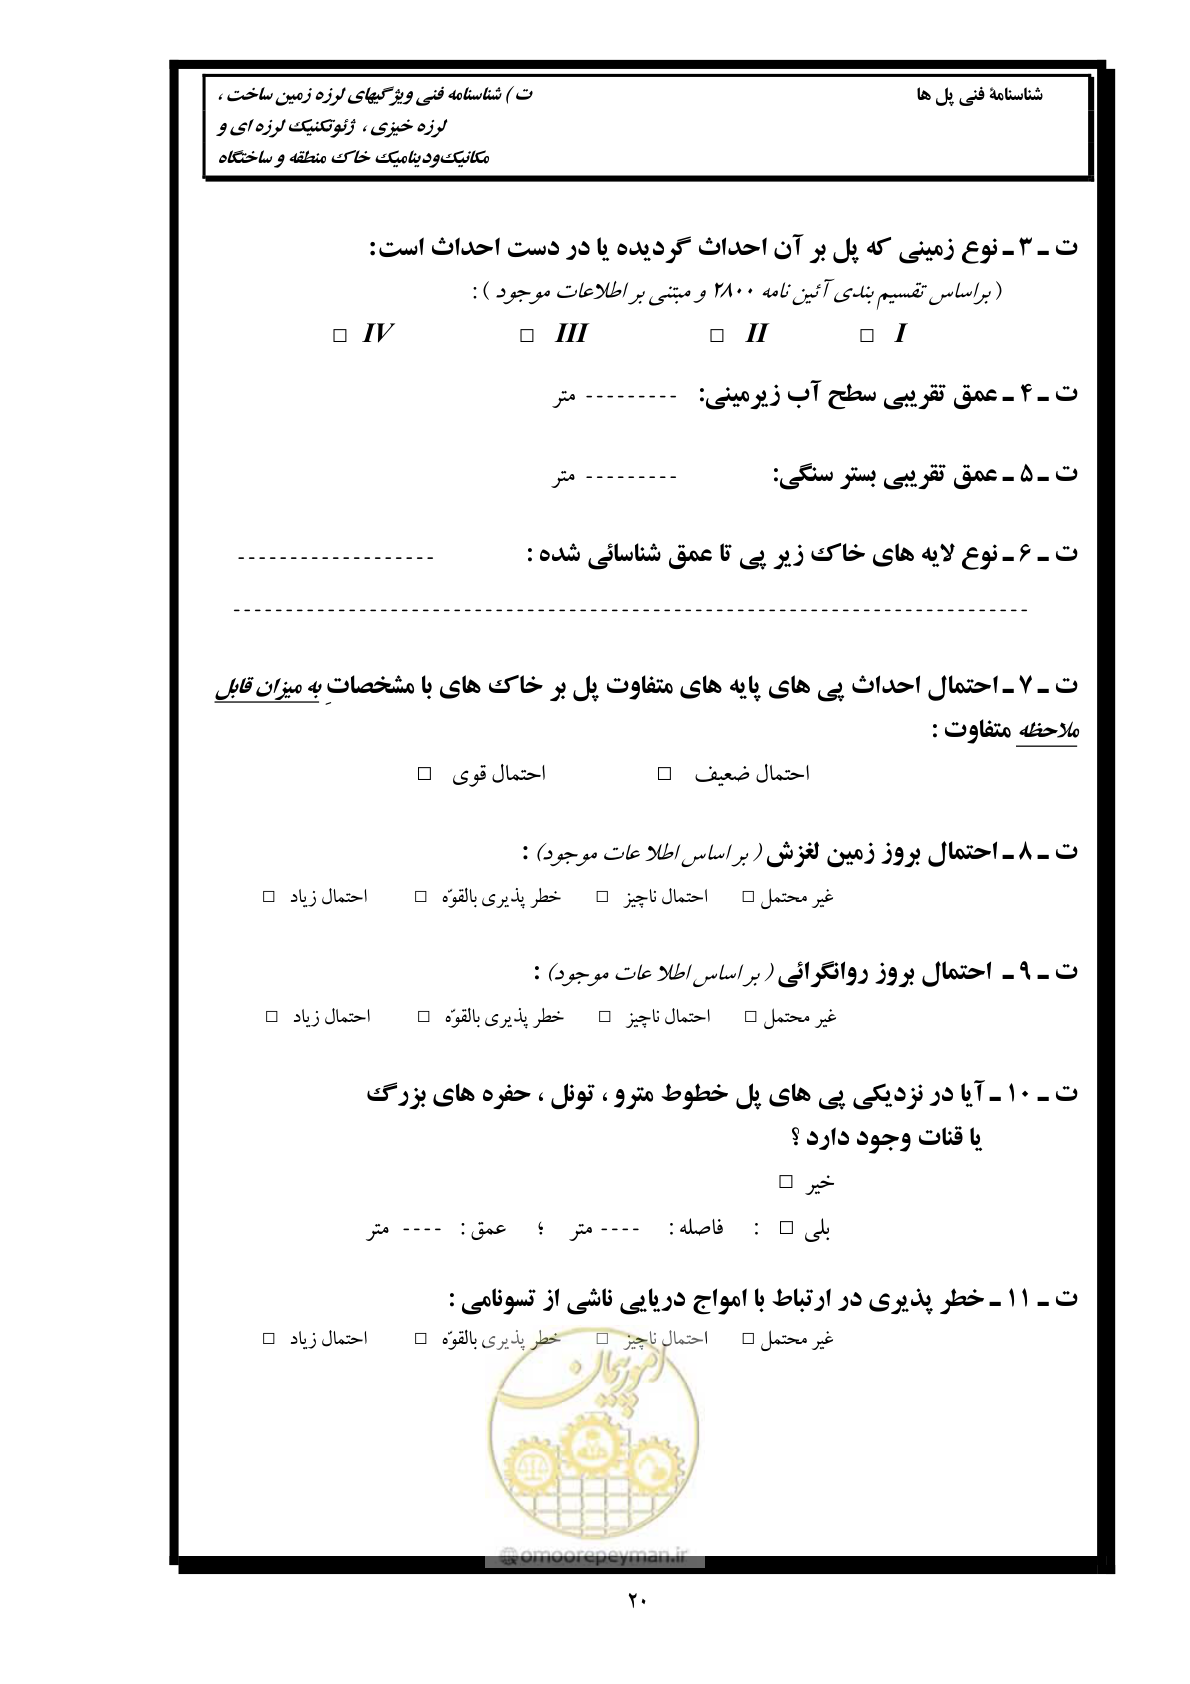 شناسنامهٔ فنی پل ها
ت ) شناسنامه فنی ویژگیهای لرزه زمین ساخت ،
لرزه خیزی ، ژئوتکنیک لرزه ای و
مکانیک‌ودینامیک خاک منطقه و ساختگاه
ت ـ ۳ ـ نوع زمینی که پل بر آن احداث گردیده یا در دست احداث است:
( براساس تقسیم بندی آئین نامه ۲۸۰۰ و مبتنی بر اطلاعات موجود ) :
I □ II □ III □ IV □
ت ـ ۴ ـ عمق تقریبی سطح آب زیرمینی: --------- متر
ت ـ ۵ ـ عمق تقریبی بستر سنگی: --------- متر
ت ـ ۶ ـ نوع لایه های خاک زیر پی تا عمق شناسائی شده : -------------------
----------------------------------------------------------------------------
ت ـ ۷ ـ احتمال احداث پی های پایه های متفاوت پل بر خاک های با مشخصاتِ به میزان قابل
ملاحظه متفاوت :
احتمال ضعیف □ احتمال قوی □
ت ـ ۸ ـ احتمال بروز زمین لغزش ( بر اساس اطلاعات موجود) :
غیر محتمل □ احتمال ناچیز □ خطر پذیری بالقوّه □ احتمال زیاد □
ت ـ ۹ ـ احتمال بروز روانگرائی ( بر اساس اطلاعات موجود) :
غیر محتمل □ احتمال ناچیز □ خطر پذیری بالقوّه □ احتمال زیاد □
ت ـ ۱۰ ـ آیا در نزدیکی پی های پل خطوط مترو ، تونل ، حفره های بزرگ
یا قنات وجود دارد ؟
خیر □
بلی □ : فاصله : ---- متر ؛ عمق : ---- متر
ت ـ ۱۱ ـ خطر پذیری در ارتباط با امواج دریایی ناشی از تسونامی :
غیر محتمل □ احتمال ناچیز □ خطر پذیری بالقوّه □ احتمال زیاد □
امور پیمان
@omoorepeyman.ir
۲۰